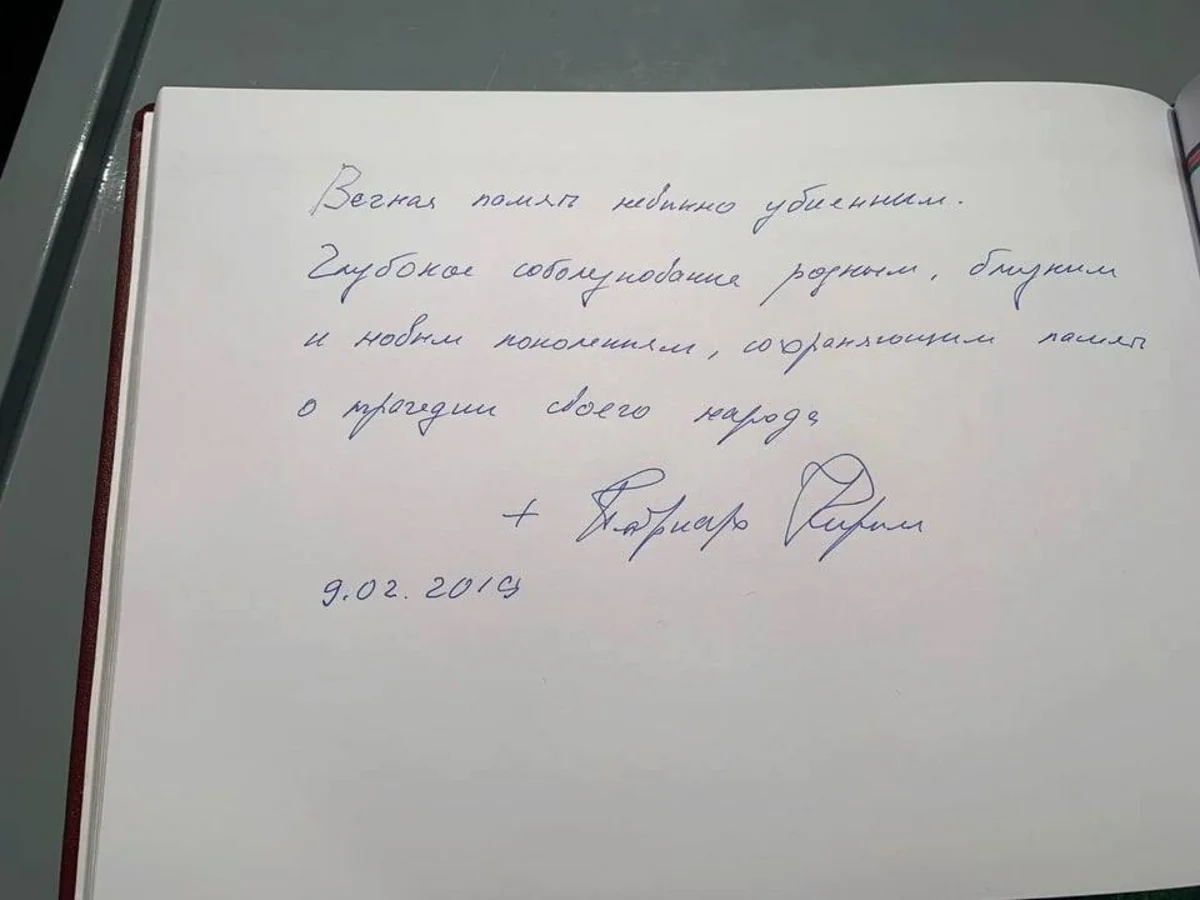 Вечная память невинно убиенным.
Глубокое соболезнование родным, близким
и новым поколениям, сохраняющим память
о трагедии своего народа
+ Патриарх Кирилл
9.02.2019